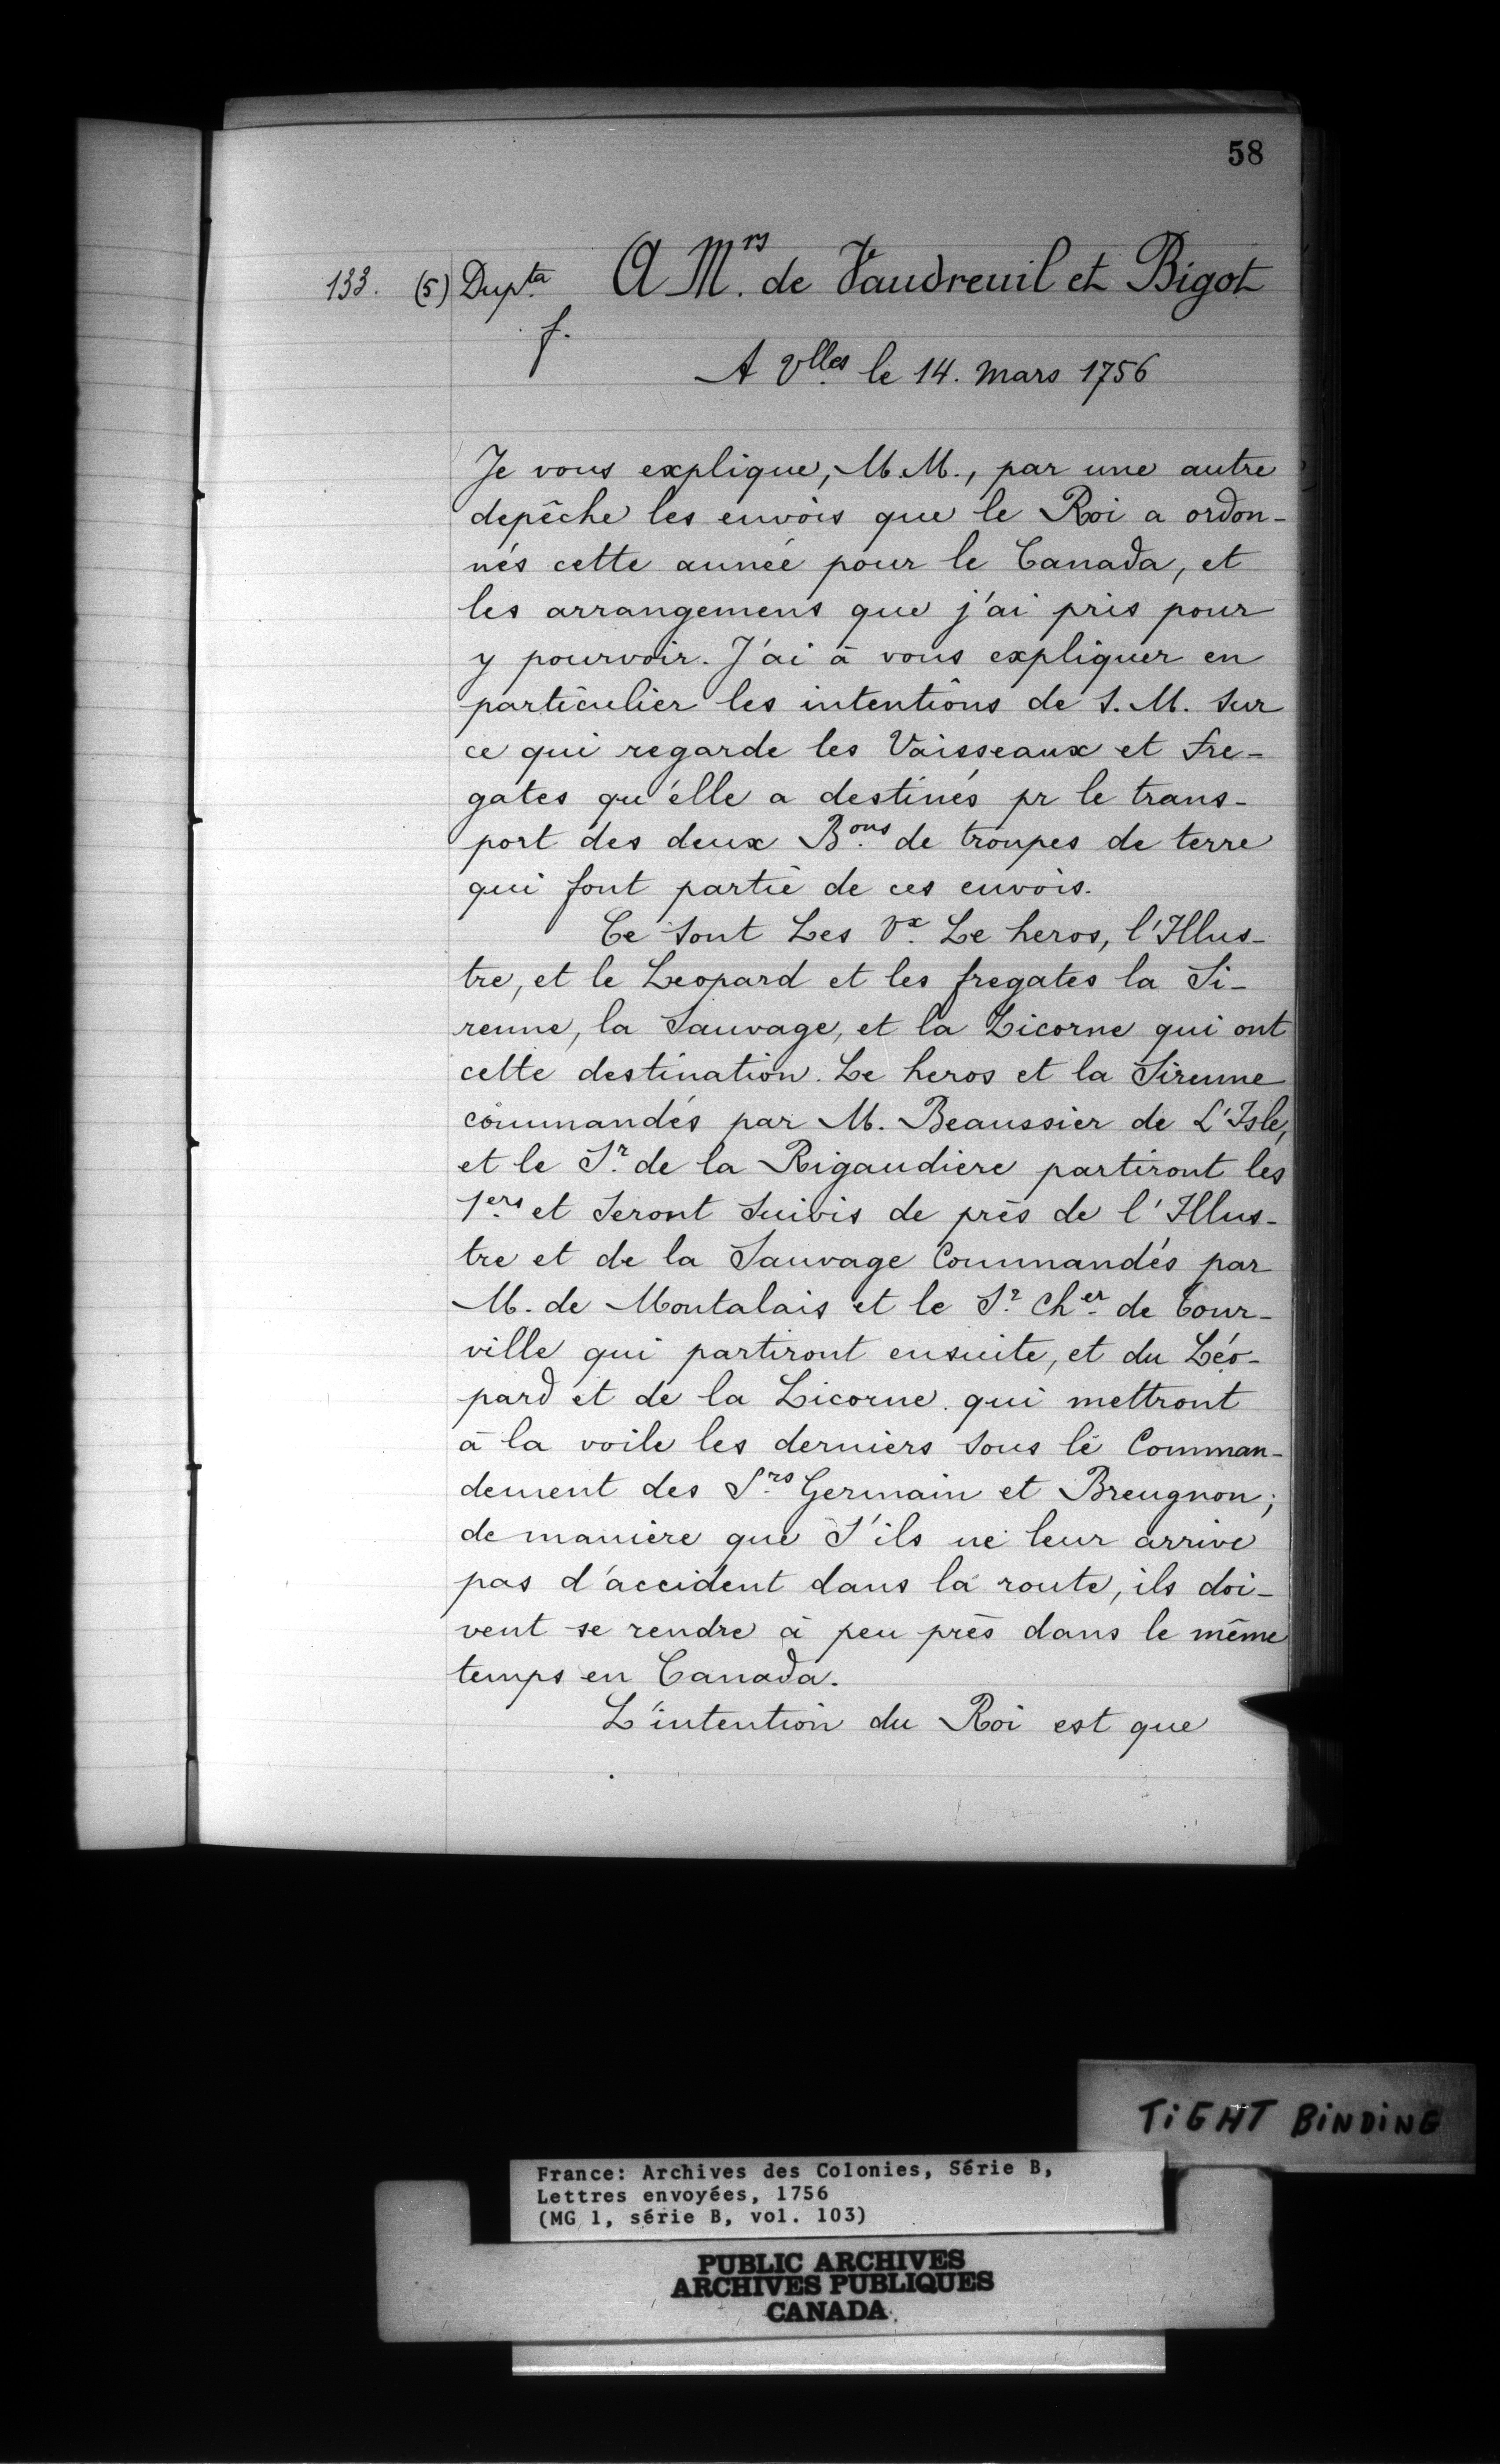 58
133. (5) Dupta A Mrs. de Vaudreuil et Bigot
f.
A Vlles le 14. Mars 1756
Je vous explique, M.M., par une autre
depêche les envois que le Roi a ordon-
nés cette année pour le Canada, et
les arrangemens que j'ai pris pour
y pourvoir. J'ai à vous expliquer en
particulier les intentions de S. M. sur
ce qui regarde les Vaisseaux et fre-
gates qu'elle a destinés pr le trans-
port des deux Bons de troupes de terre
qui font partie de ces envois.
Ce sont Les Vx. Le heros, l'Illus-
tre, et le Leopard et les fregates la Si-
renne, la Sauvage, et la Licorne qui ont
cette destination. Le heros et la Sirenne
commandés par M. Beaussier de L'Isle,
et le Sr. de la Rigaudiere partiront les
1ers et seront suivis de près de l'Illus-
tre et de la Sauvage Commandés par
M. de Montalais et le Sr. Cher. de Tour-
ville qui partiront ensuite, et du Léo-
pard et de la Licorne qui mettront
à la voile les derniers sous le Comman-
dement des Srs. Germain et Breugnon;
de maniere que s'ils ne leur arrive
pas d'accident dans la route, ils doi-
vent se rendre à peu près dans le même
temps en Canada.
L'intention du Roi est que
TIGHT BINDING
France: Archives des Colonies, Série B,
Lettres envoyées, 1756
(MG 1, série B, vol. 103)
PUBLIC ARCHIVES
ARCHIVES PUBLIQUES
CANADA